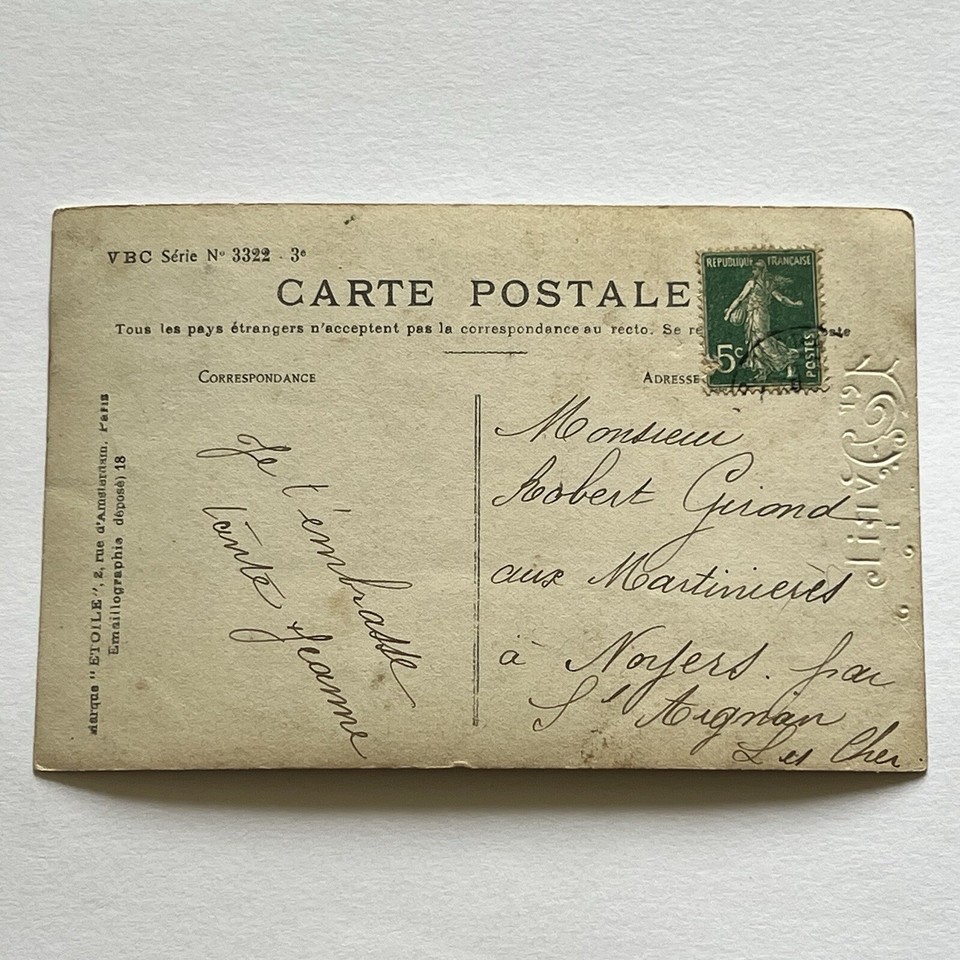 VBC Série No 3322 - 3e
CARTE POSTALE
Tous les pays étrangers n'acceptent pas la correspondance au recto. Se re
CORRESPONDANCE
ADRESSE
REPUBLIQUE FRANÇAISE
5c
POSTES
Marque "ETOILE", 2, rue d'Amsterdam. Paris
Emaillographie déposé) 18
Je t'embrasse
tante Jeanne
Monsieur
Robert Girond
aux Martinieres
à Noyers. par
St Aignan
L et Cher.
1er Avril